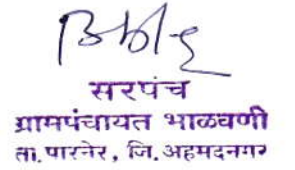 सरपंच
ग्रामपंचायत भाळवणी
ता. पारनेर, जि. अहमदनगर